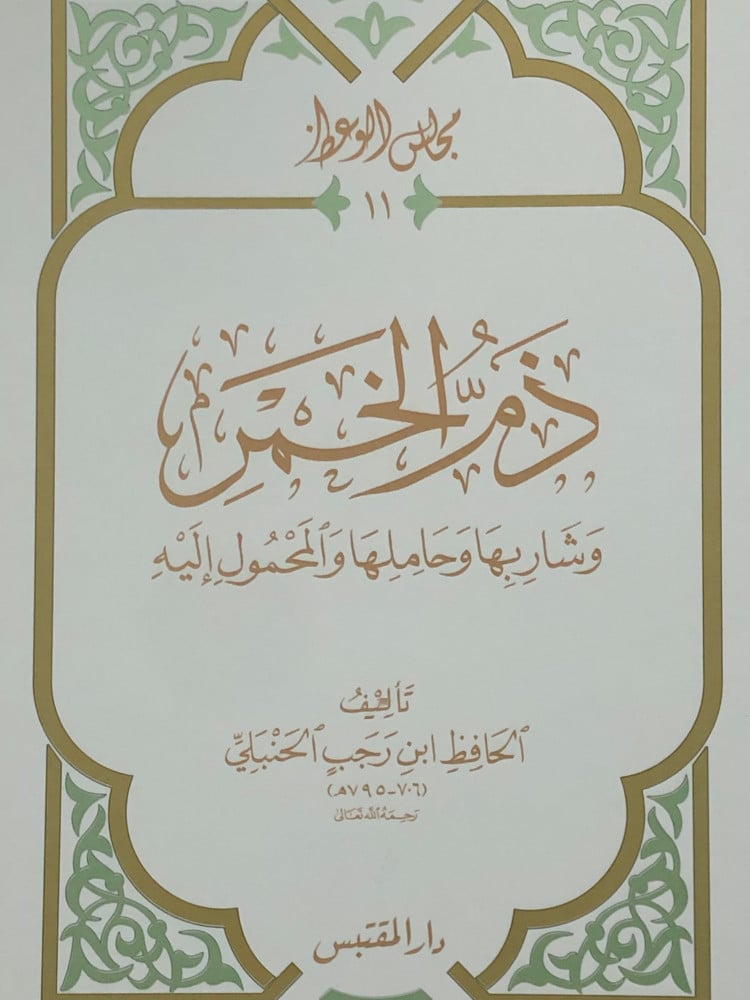 مجالس الوعظ
١١
ذَمُّ الخَمْرِ
وَشَارِبِهَا وَحَامِلِهَا وَالمَحْمُولِ إِلَيْهِ
تَألِيْفُ
الحَافِظِ ابنِ رَجَبٍ الحَنْبَلِيِّ
(٧٠٦-٧٩٥هـ)
رَحِمَهُ اللَّه تَعَالَىٰ
دار المقتبس